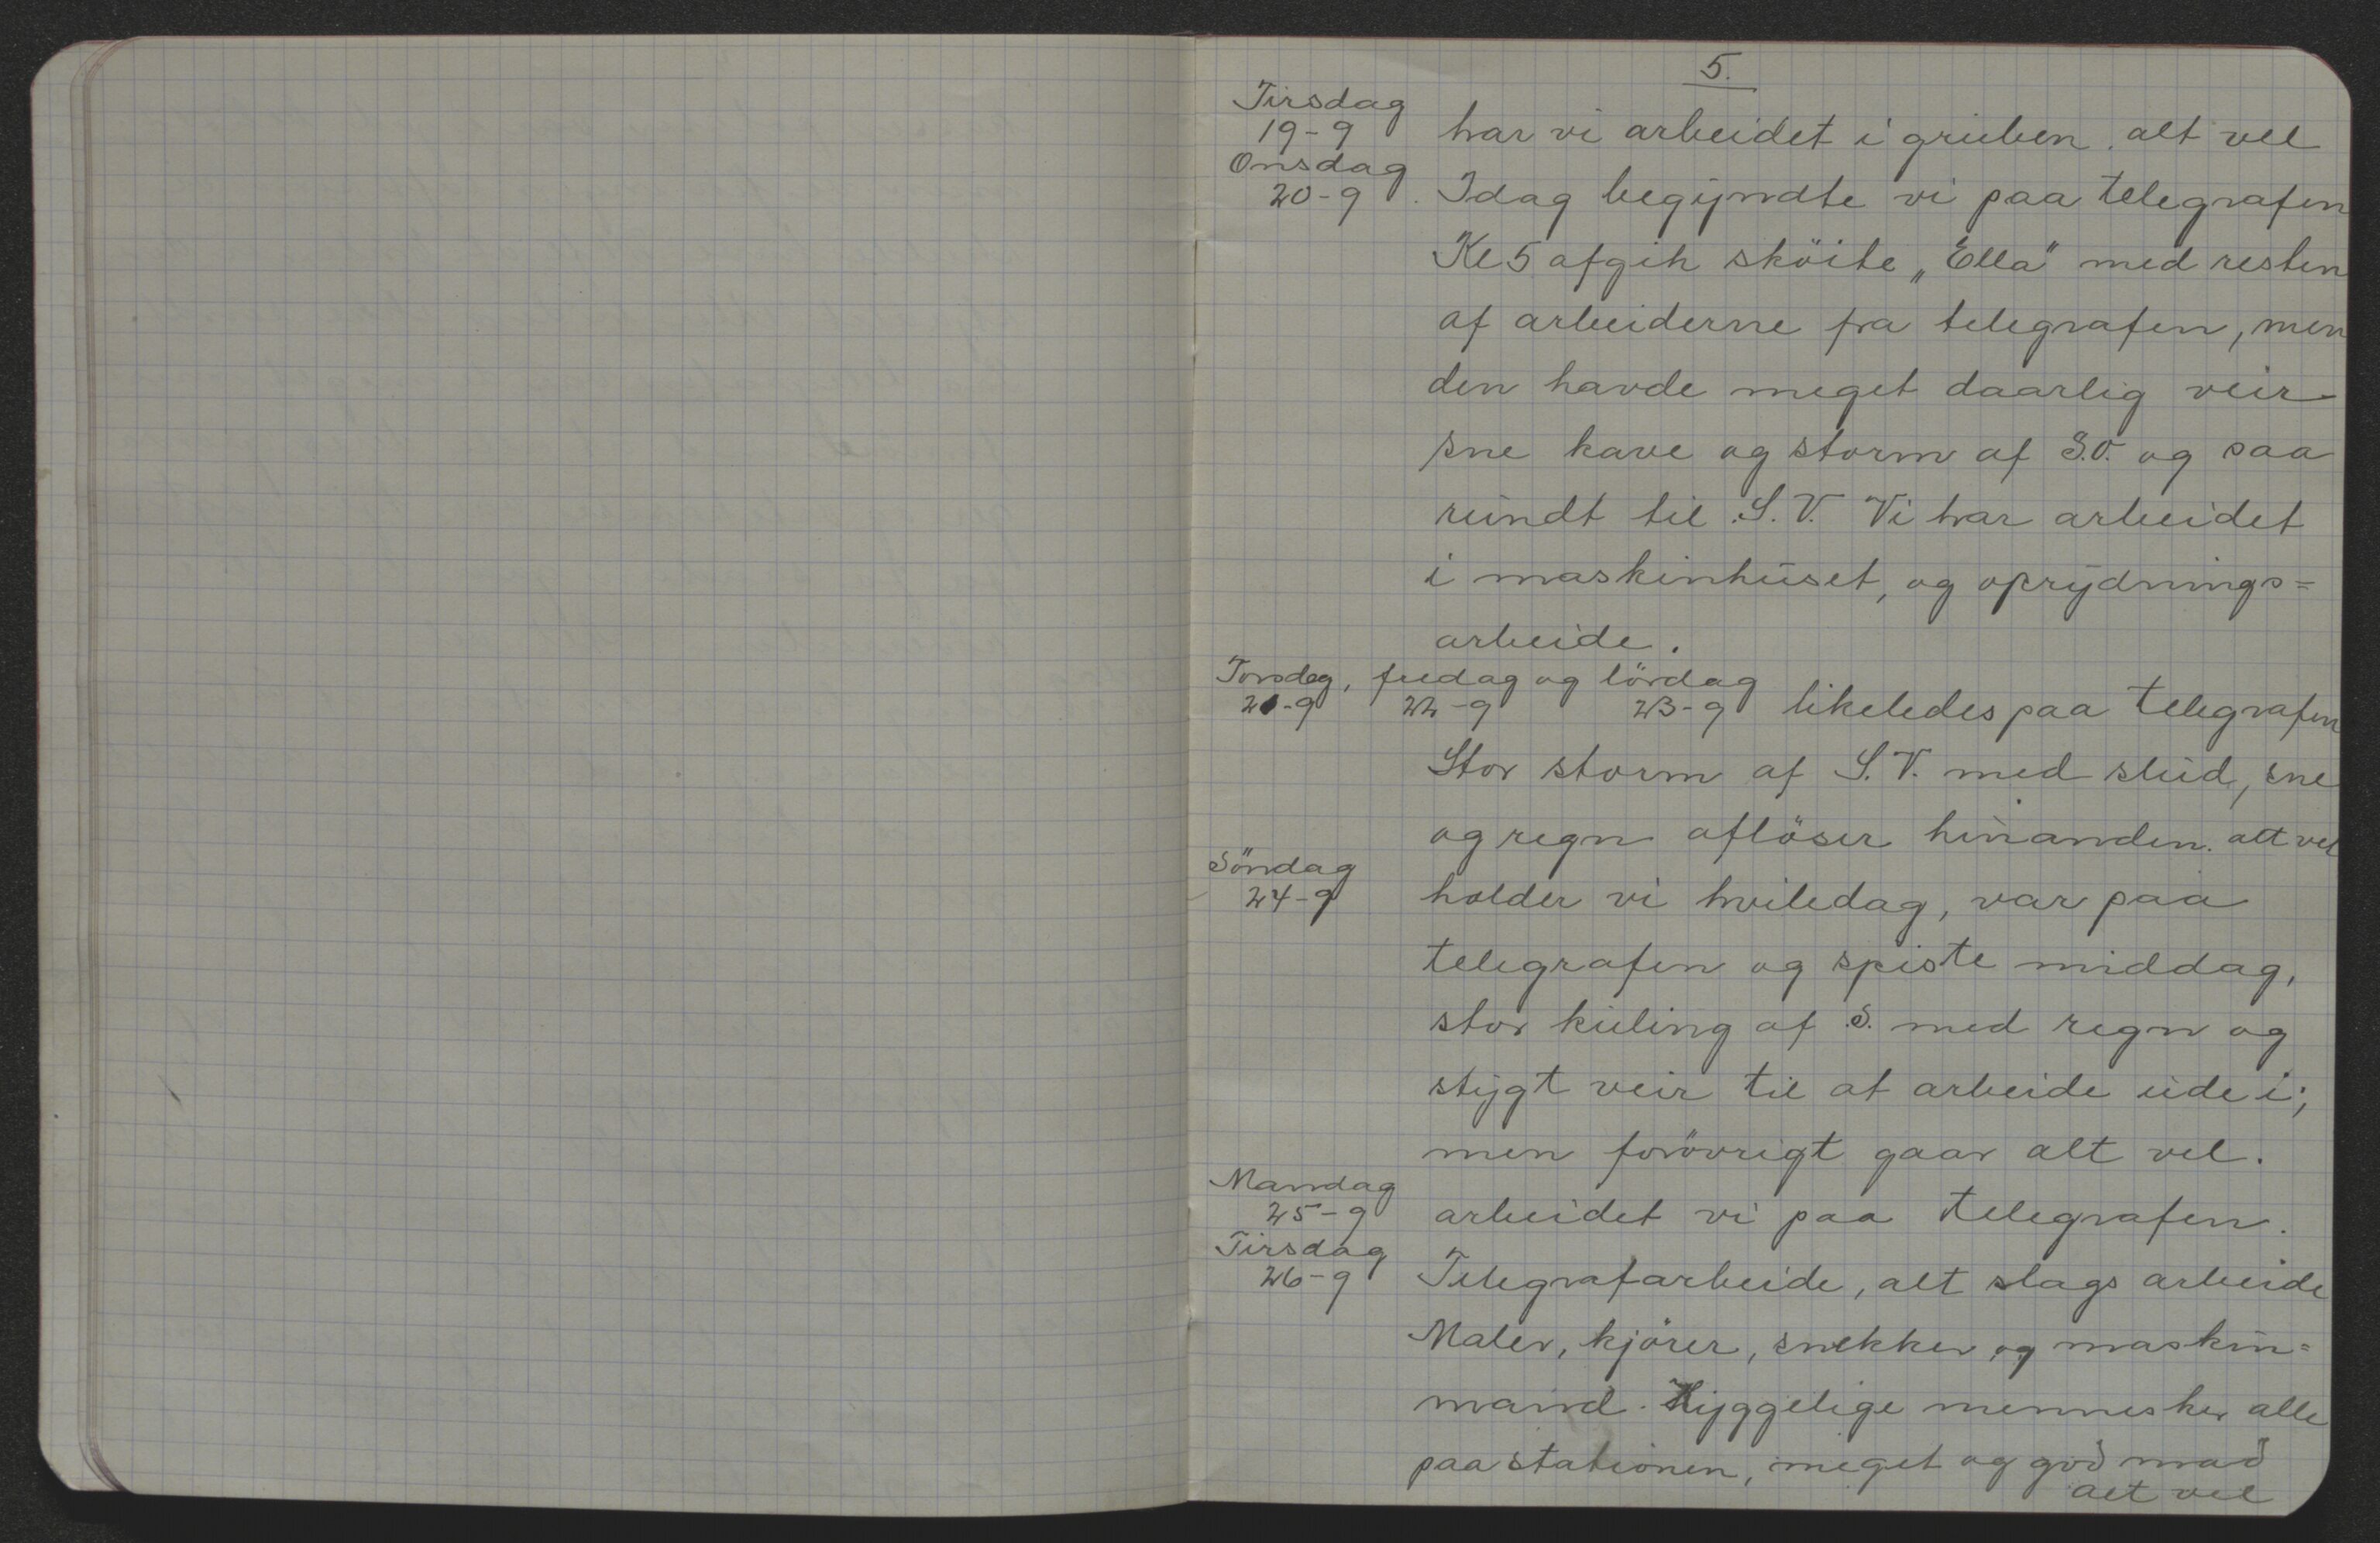 5.
Tirsdag
19-9 har vi arbeidet i gruben. alt vel
Onsdag
20-9. Idag begyndte vi paa telegrafen
Kl 5 afgik sköite „Ella" med resten
af arbeiderne fra telegrafen, men
den havde meget daarlig veir
sne kave og storm af S.O. og saa
rundt til S.V. Vi har arbeidet
i maskinhuset, og oprydnings=
arbeide.
Torsdag, fredag og lördag
21-9 22-9 23-9 likeledes paa telegrafen
Stor storm af S.V. med slud, sne
og regn aflöser hinanden. alt vel
Söndag
24-9 holder vi hviledag, var paa
telegrafen og spiste middag,
stor kuling af S. med regn og
stygt veir til at arbeide ude i;
men forövrigt gaar alt vel.
Mandag
25-9 arbeidet vi paa telegrafen.
Tirsdag
26-9 Telegrafarbeide, alt slags arbeide
Maler, kjörer, snekker og maskin=
mand. Hyggelige mennesker alle
paa stationen, meget og god mad
alt vel